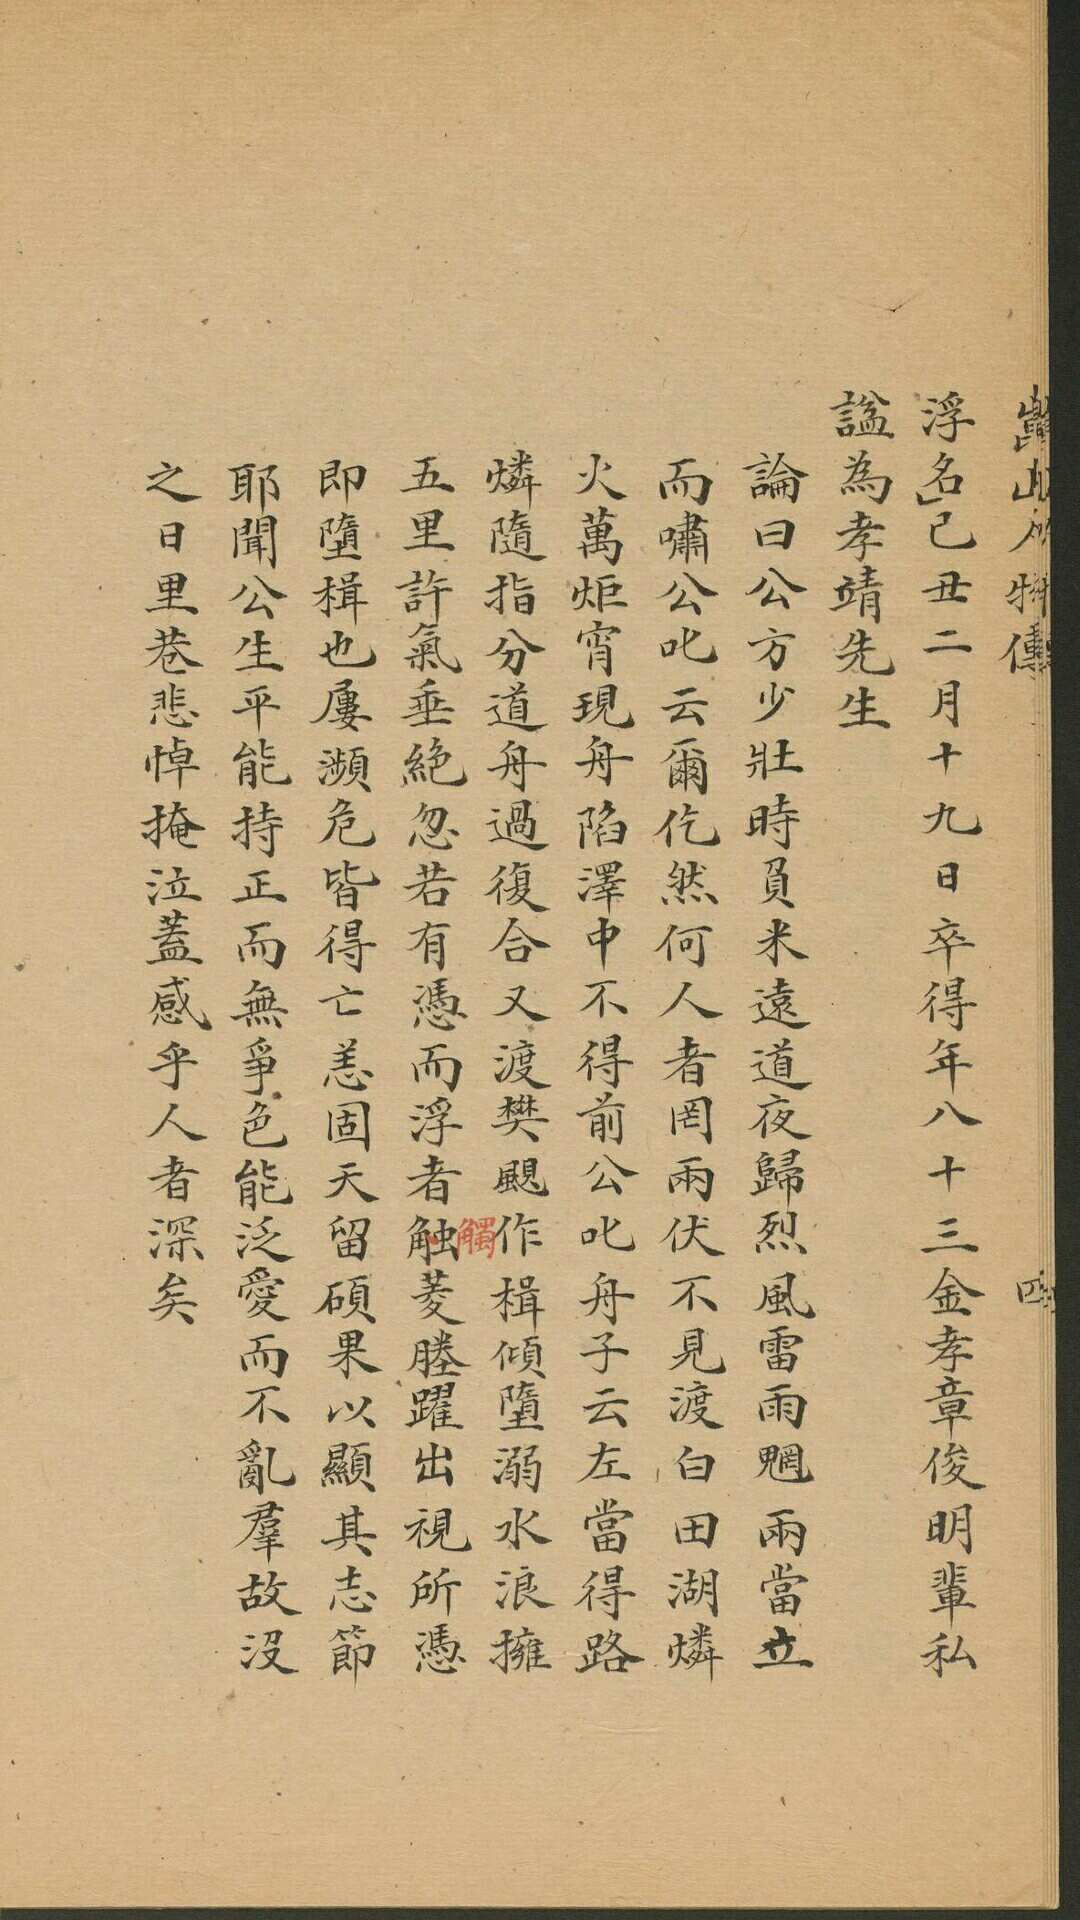 人物傳
四
浮名己丑二月十九日卒得年八十三金孝章俊明輩私
諡為孝靖先生
論曰公方少壯時負米遠道夜歸烈風雷雨魍兩當立
而嘯公叱云爾仡然何人者罔兩伏不見渡白田湖燐
火萬炬宵現舟陷澤中不得前公叱舟子云左當得路
燐隨指分道舟過復合又渡樊颶作楫傾墮溺水浪擁
五里許氣垂絕忽若有憑而浮者触菱塍躍出視所憑
觸
即墮楫也屢瀕危皆得亡恙固天留碩果以顯其志節
耶聞公生平能持正而無爭色能泛愛而不亂羣故沒
之日里巷悲悼掩泣蓋感乎人者深矣